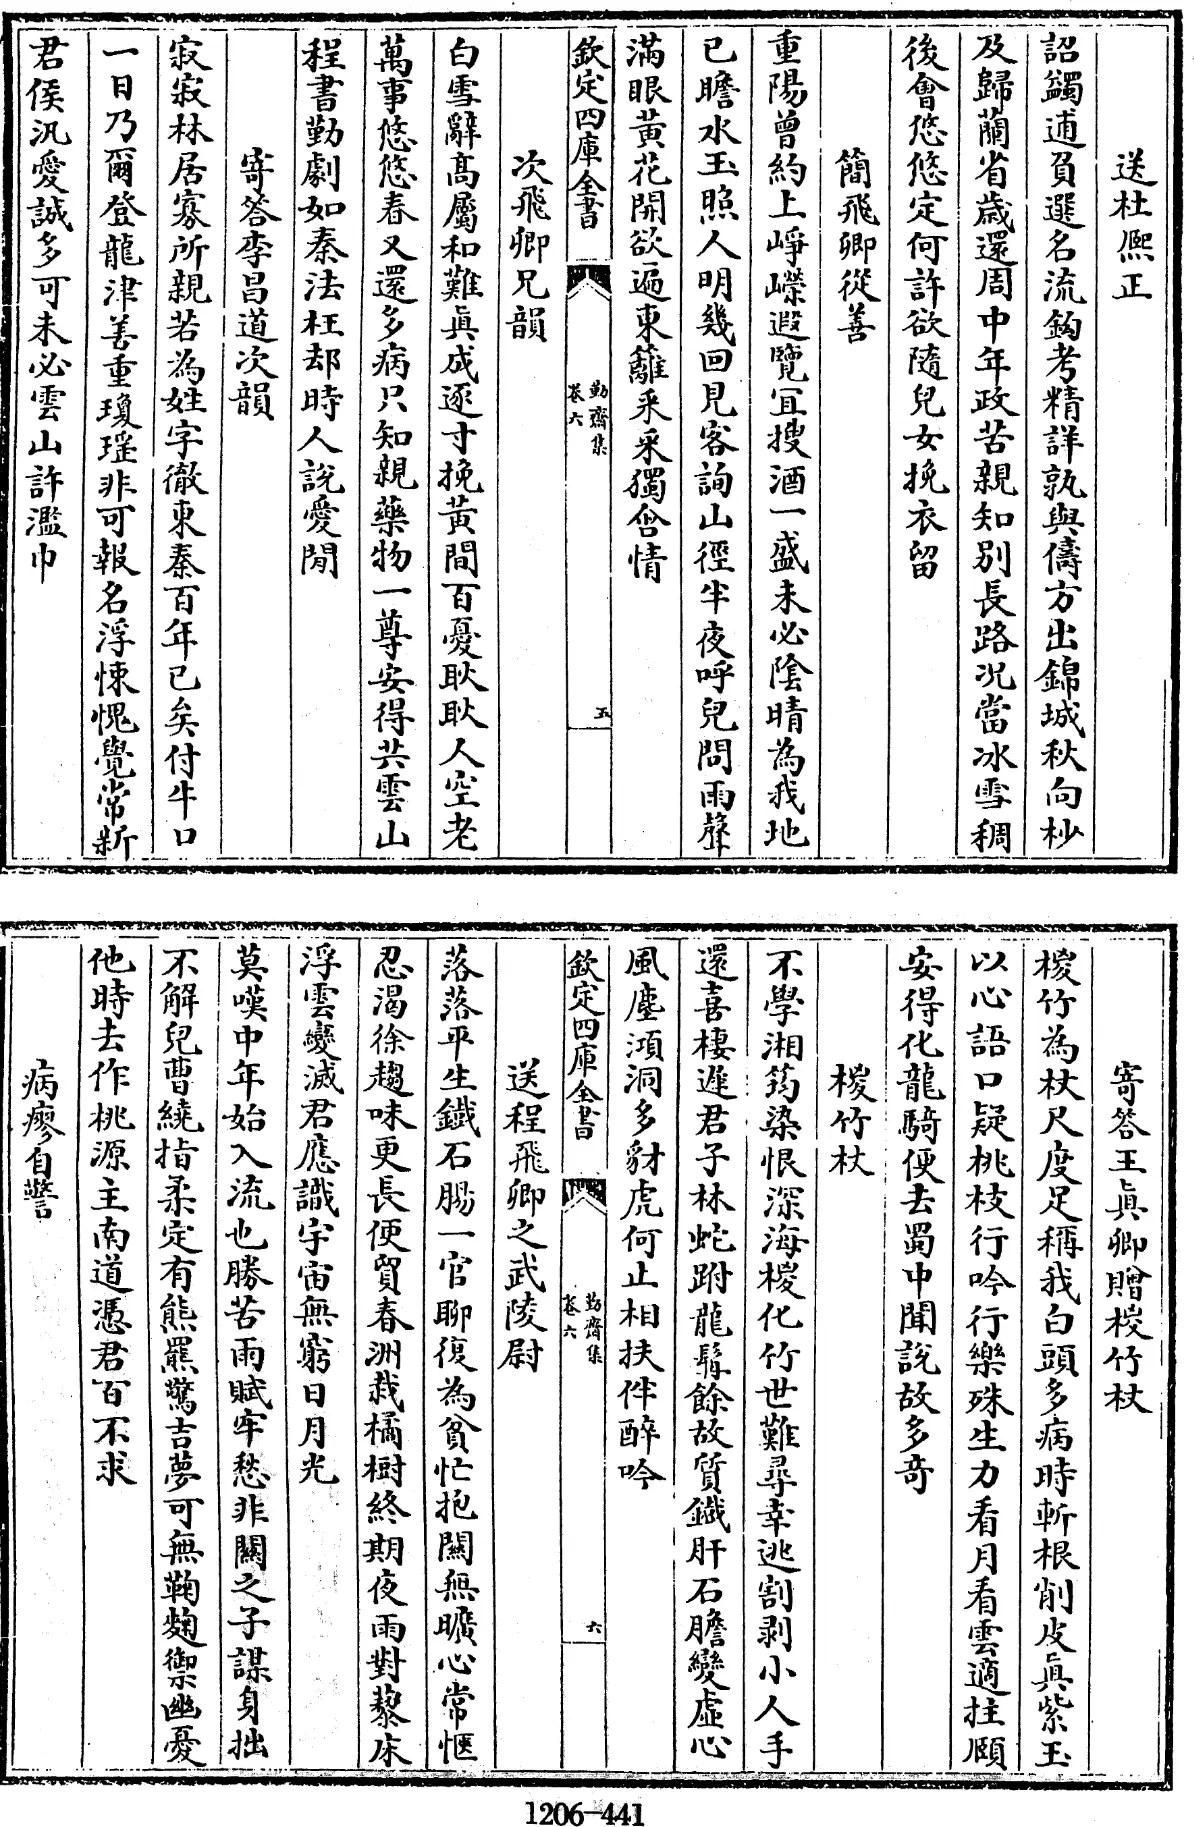 送杜熈正
詔蠲逋負選名流鈎考精詳孰與儔方出錦城秋向杪
及歸蘭省歲還周中年政苦親知别長路况當冰雪稠
後會悠悠定何許欲隨兒女挽衣留
簡飛卿從善
重陽曾約上崢嶸遐覽宜搜酒一盛未必陰晴為我地
已瞻水玉照人明幾回見客詢山徑半夜呼兒問雨聲
滿眼黃花開欲遍東籬采采獨含情
欽定四庫全書
勤齋集
卷六
五
次飛卿兄韻
白雪辭高屬和難真成逐寸挽黃間百憂耿耿人空老
萬事悠悠春又還多病只知親藥物一尊安得共雲山
程書勤劇如秦法枉却時人說愛閒
寄答李昌道次韻
寂寂林居寡所親若為姓字徹東秦百年已矣付牛口
一日乃爾登龍津善重瓊瑶非可報名浮悚愧覺常新
君侯汎愛誠多可未必雲山許濫巾
寄答王真卿贈椶竹杖
椶竹為杖尺度足稱我白頭多病時斬根削皮真紫玉
以心語口疑桃枝行吟行樂殊生力看月看雲適拄頤
安得化龍騎便去蜀中聞說故多奇
椶竹杖
不學湘筠染恨深海椶化竹世難尋幸逃割剥小人手
還喜棲遲君子林蛇跗龍髯餘故質鐵肝石膽變虛心
風塵澒洞多豺虎何止相扶伴醉吟
欽定四庫全書
勤齋集
卷六
六
送程飛卿之武陵尉
落落平生鐵石腸一官聊復為貧忙抱關無曠心常愜
忍渴徐趨味更長便買春洲栽橘樹終期夜雨對藜床
浮雲變滅君應識宇宙無窮日月光
莫嘆中年始入流也勝苦雨賦牢愁非關之子謀身拙
不解兒曹繞指柔定有熊羆驚吉夢可無鞠麴禦幽憂
他時去作桃源主南道憑君百不求
病瘳自警
1206-441